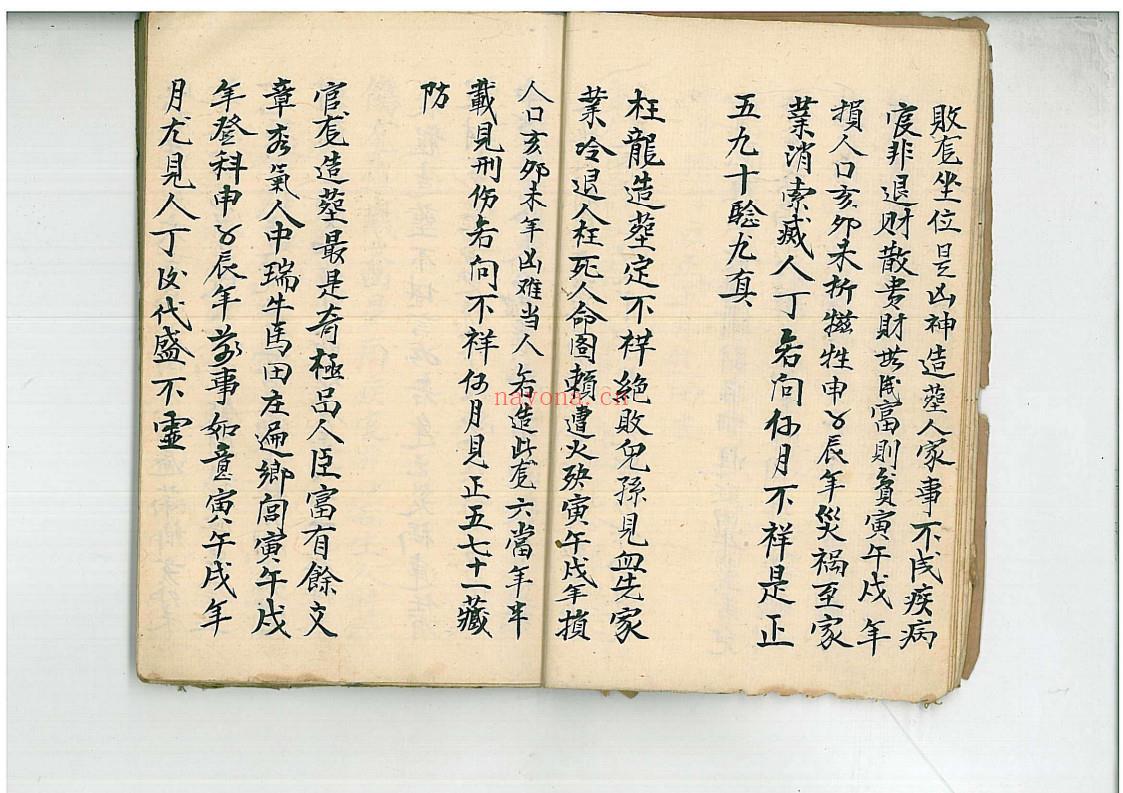 敗竜坐位是凶神造塟人家事不成疾病
官非退財散書財共成富則貧寅午戌年
損人口亥卯未折犠牲申子辰年災禍至家
業消索威人丁若问何月不祥是正
五九十騐尤真
枉龍造塟定不祥絶敗兒孫見血先家
業冷退人枉死人命啚賴遭火殃寅午戌年損
人口亥卯未年凶难当人若造此竜六當年半
載見刑伤若问不祥何月見正五七十一藏
防
官竜造塟最是奇極品人臣富有餘文
章秀氣人中瑞牛馬田庄遍鄉閭寅午戌
年登科申子辰年萬事如意寅午戌年
月尤見人丁後代盛不靈
nayona.cn